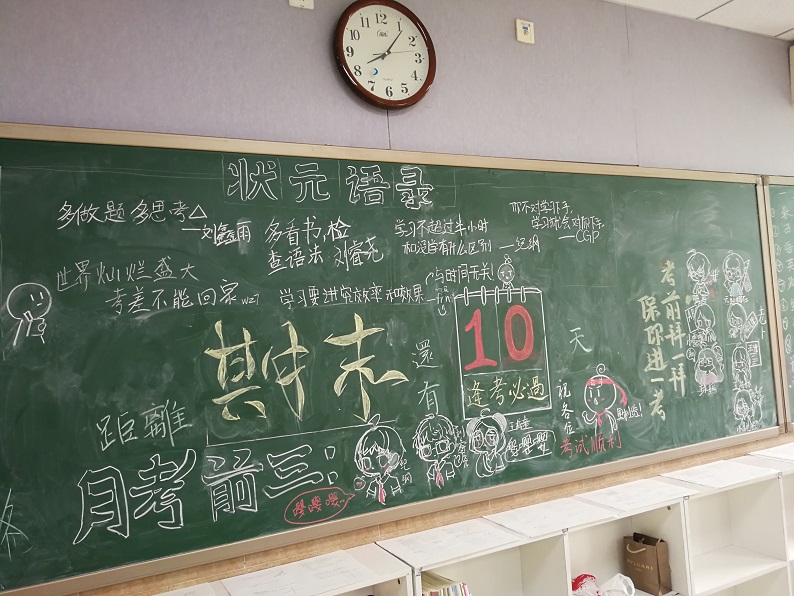 状元语录
多做题 多思考
多看书,检
查语法 刘睿尧
学习不超过半小时
和没学有什么区别 —纪纲
你不对学习下手,
学习就会对你下手
—CGP
世界灿烂盛大
考差不能回家 wz7
学习要讲究效率和效果
与时间无关!
距離
期中末
還有
10
天
逢考必過
祝各位
考试顺利
考前拜一拜
保你进一考
月考前三:
嘤嘤嘤
BVLGARI
12
1
2
3
4
5
6
7
8
9
10
11